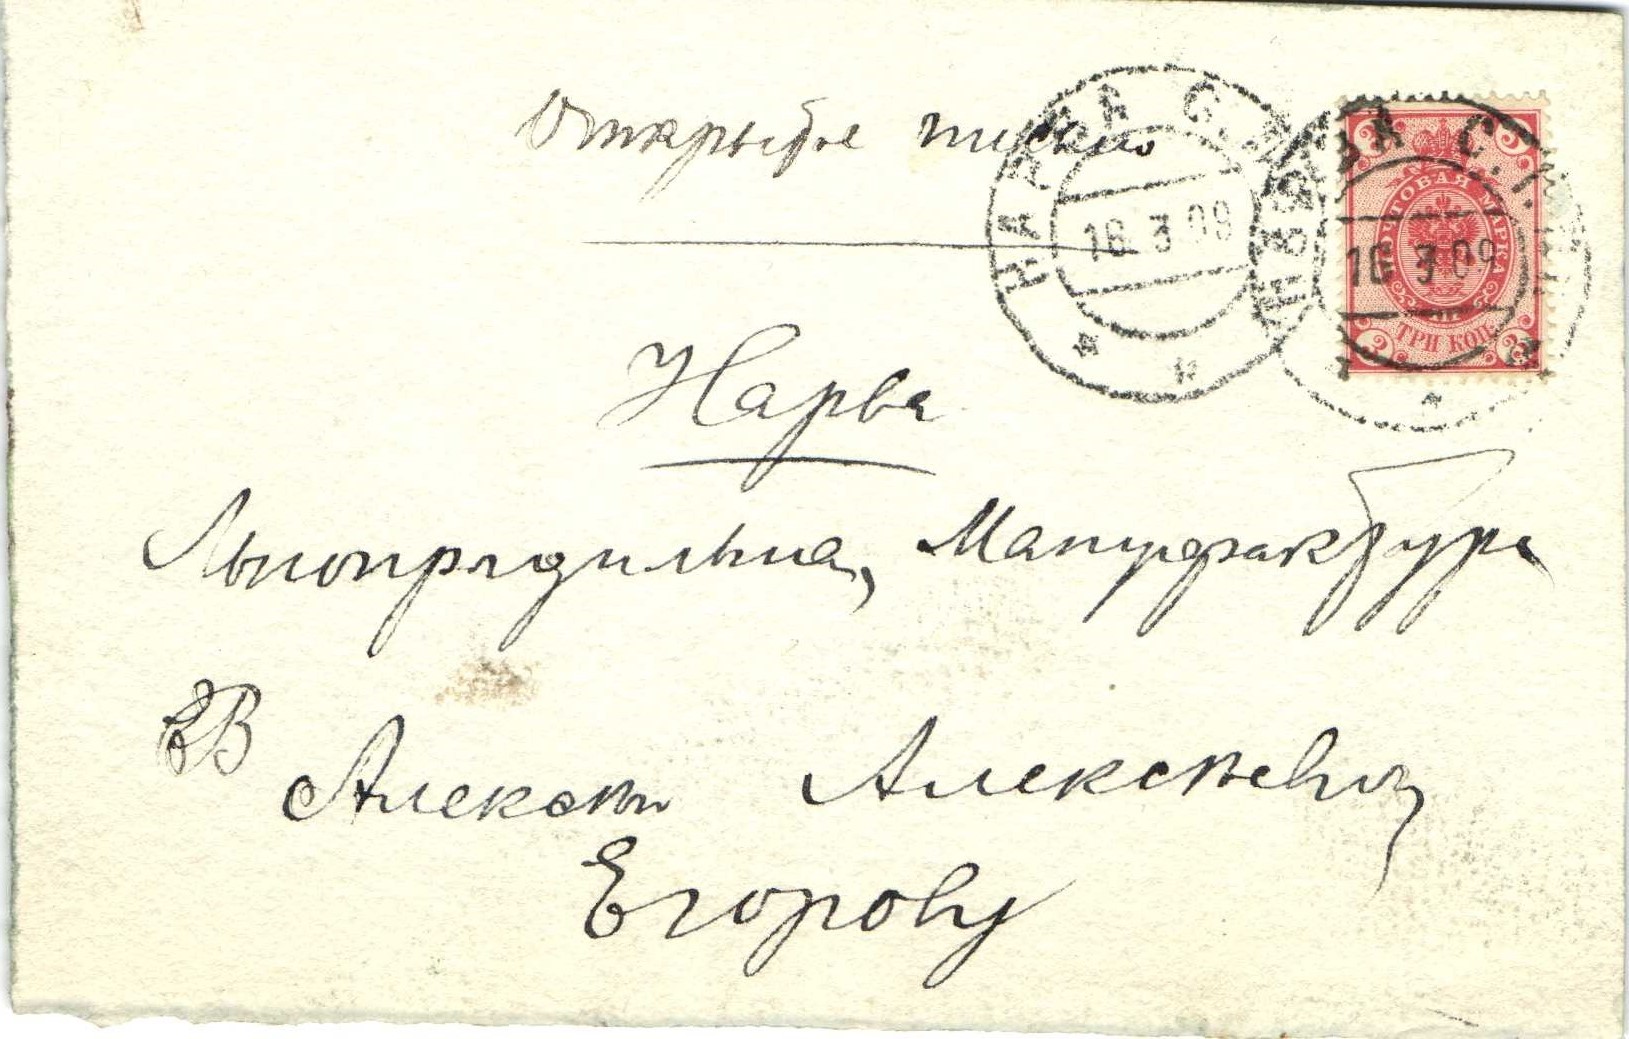 Открытое письмо
НАРВА С.П.
16.3.09
НАРВА С.П.
16.3.09
ПОЧТОВАЯ МАРКА
3 3
3 3
ТРИ КОП.
Нарва
Льнопрядильная, Мануфактура
ЕВ
Алексѣю Алексѣевичу
Егорову